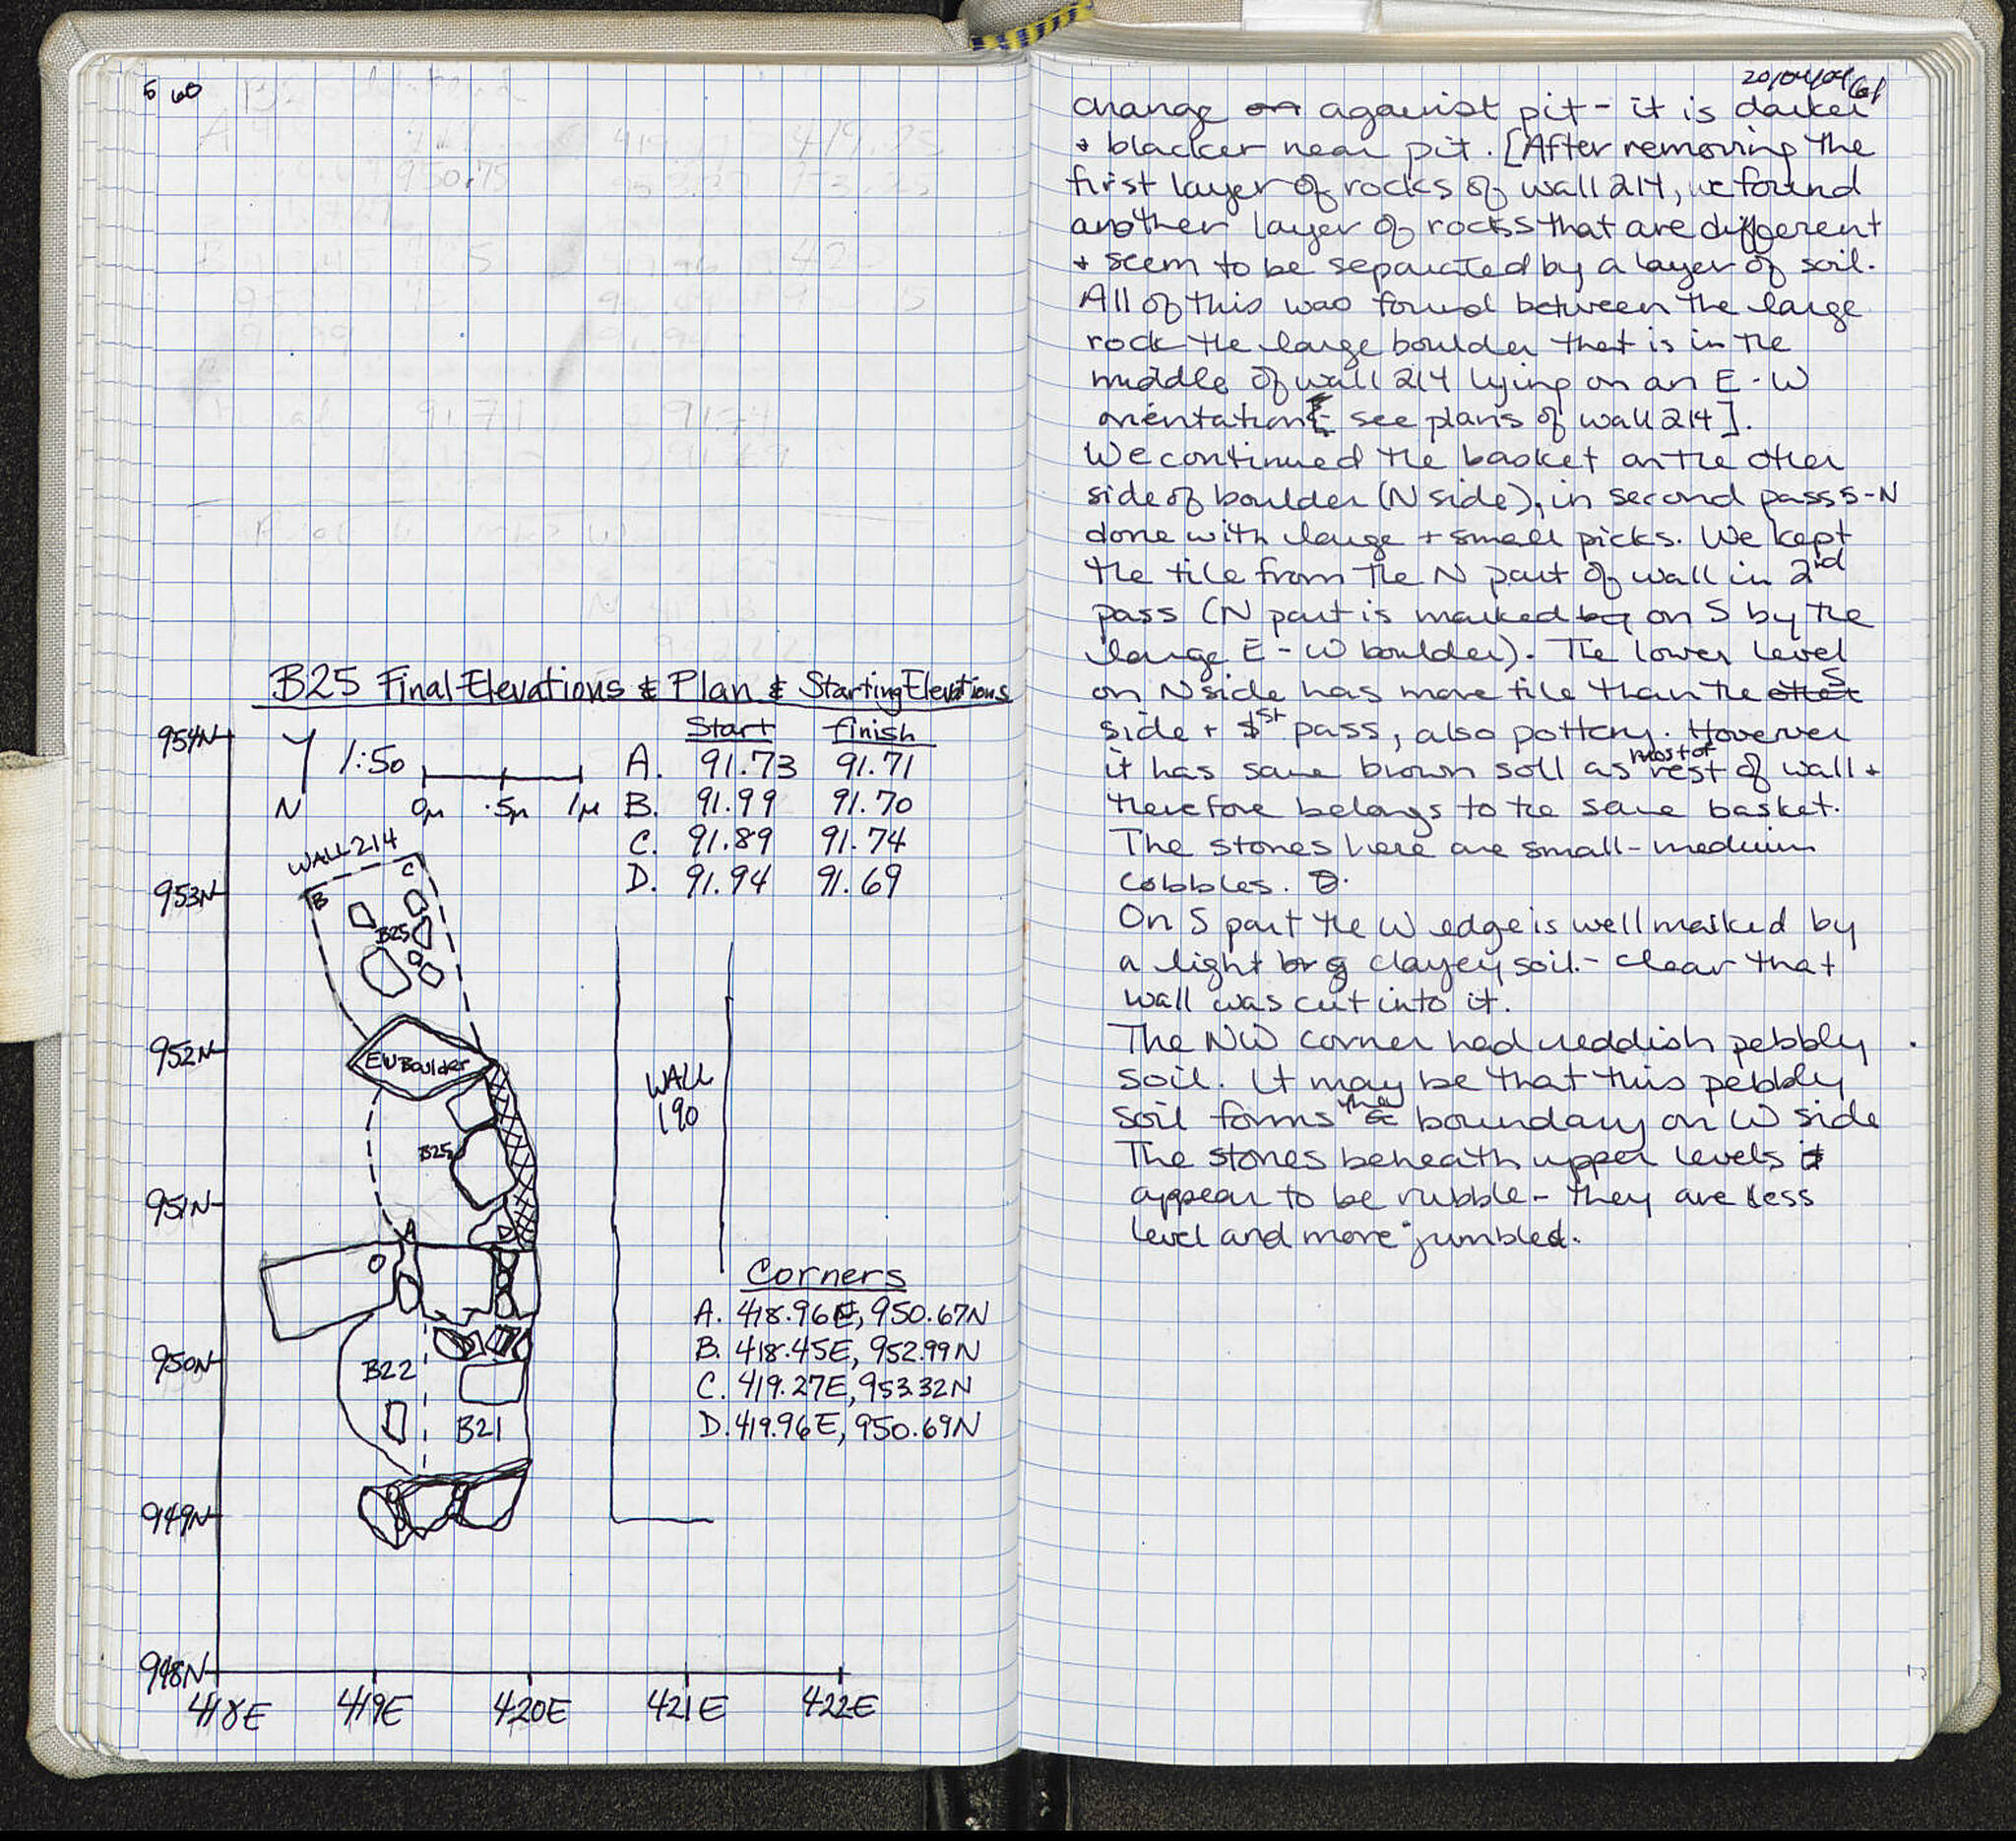 60
B25 Final Elevations & Plan & Starting Elevations
Start finish
A. 91.73 91.71
B. 91.99 91.70
C. 91.89 91.74
D. 91.94 91.69
1:50
N 0m .5m 1m
954N
953N
952N
951N
950N
949N
948N
418E 419E 420E 421E 422E
WALL 214
B
C
B25
EW Boulder
B25
A
D
B22
B21
WALL
190
Corners
A. 418.96E, 950.67N
B. 418.45E, 952.99N
C. 419.27E, 953.32N
D. 419.96E, 950.69N
61
change on against pit - it is darker
+ blacker near pit. [After removing the
first layer of rocks of wall 214, we found
another layer of rocks that are different
+ seem to be separated by a layer of soil.
All of this was found between the large
rock the large boulder that is in the
middle of wall 214 lying on an E-W
orientation see plans of wall 214].
We continued the basket on the other
side of boulder (N side), in second pass S-N
done with large + small picks. We kept
the tile from the N part of wall in 2nd
pass (N part is marked by on S by the
large E-W boulder). The lower level
on N side has more tile than the other S
side + 1st pass, also pottery. However
it has same brown soil as most of rest of wall +
therefore belongs to the same basket.
The stones here are small-medium
cobbles.
On S part the W edge is well marked by
a light clayey soil - clear that
wall was cut into it.
The NW corner had reddish pebbly
soil. It may be that this pebbly
soil forms the boundary on W side
The stones beneath upper levels
appear to be rubble - they are less
level and more jumbled.